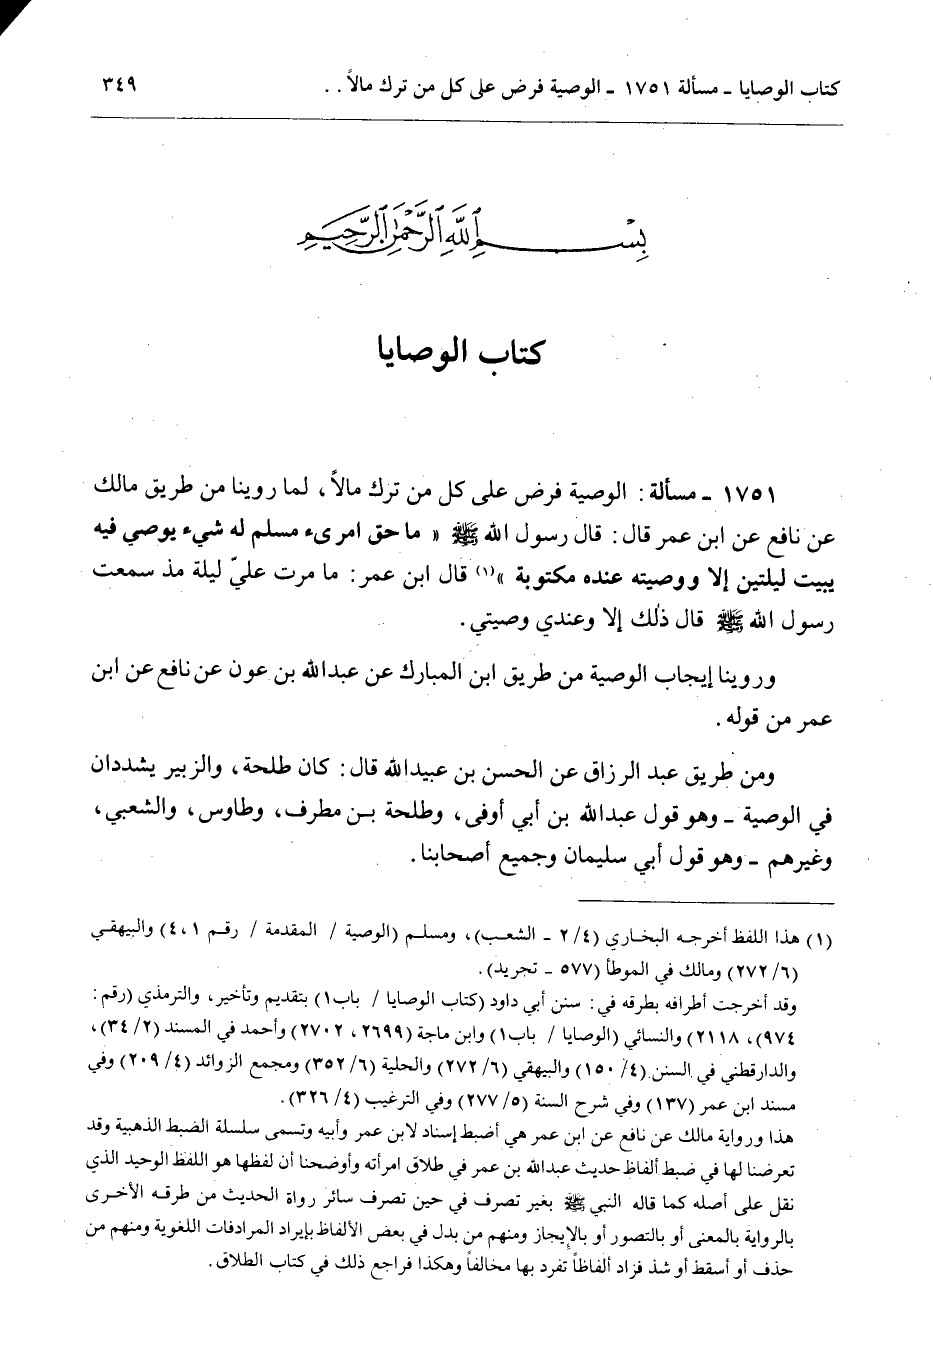 كتاب الوصايا ـ مسألة ١٧٥١ ـ الوصية فرض على كل من ترك مالاً . . ٣٤٩
بِسْمِ ٱللَّهِ ٱلرَّحْمَٰنِ ٱلرَّحِيمِ
كتاب الوصايا
١٧٥١ ـ مسألة : الوصية فرض على كل من ترك مالاً ، لما روينا من طريق مالك
عن نافع عن ابن عمر قال : قال رسول الله ﷺ « ما حق امرىء مسلم له شيء يوصي فيه
يبيت ليلتين إلا ووصيته عنده مكتوبة »(١) قال ابن عمر : ما مرت عليّ ليلة مذ سمعت
رسول الله ﷺ قال ذٰلك إلا وعندي وصيتي .
وروينا إيجاب الوصية من طريق ابن المبارك عن عبدالله بن عون عن نافع عن ابن
عمر من قوله .
ومن طريق عبد الرزاق عن الحسن بن عبيدالله قال : كان طلحة ، والزبير يشددان
في الوصية ـ وهو قول عبدالله بن أبي أوفى ، وطلحة بن مطرف ، وطاوس ، والشعبي ،
وغيرهم ـ وهو قول أبي سليمان وجميع أصحابنا .
(١) هذا اللفظ أخرجه البخاري (٢/٤ ـ الشعب) ، ومسلم (الوصية / المقدمة / رقم ٤،١) والبيهقي
(٢٧٢/٦) ومالك في الموطأ (٥٧٧ ـ تجريد) .
وقد أخرجت أطرافه بطرقه في : سنن أبي داود (كتاب الوصايا / باب١) بتقديم وتأخير ، والترمذي (رقم :
٩٧٤) ، ٢١١٨) والنسائي (الوصايا / باب١) وابن ماجة (٢٦٩٩ ، ٢٧٠٢) وأحمد في المسند (٣٤/٢) ،
والدارقطني في السنن (١٥٠/٤) والبيهقي (٢٧٢/٦) والحلية (٣٥٢/٦) ومجمع الزوائد (٢٠٩/٤) وفي
مسند ابن عمر (١٣٧) وفي شرح السنة (٢٧٧/٥) وفي الترغيب (٣٢٦/٤) .
هذا ورواية مالك عن نافع عن ابن عمر هي أضبط إسناد لابن عمر وأبيه وتسمى سلسلة الضبط الذهبية وقد
تعرضنا لها في ضبط ألفاظ حديث عبدالله بن عمر في طلاق امرأته وأوضحنا أن لفظها هو اللفظ الوحيد الذي
نقل على أصله كما قاله النبي ﷺ بغير تصرف في حين تصرف سائر رواة الحديث من طرقه الأخرى
بالرواية بالمعنى أو بالتصور أو بالإيجاز ومنهم من بدل في بعض الألفاظ بإيراد المرادفات اللغوية ومنهم من
حذف أو أسقط أو شذ فزاد ألفاظاً تفرد بها مخالفاً وهكذا فراجع ذلك في كتاب الطلاق .